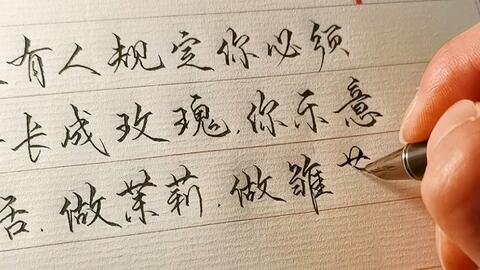 有人规定你必须
长成玫瑰，你乐意
做茉莉，做雏